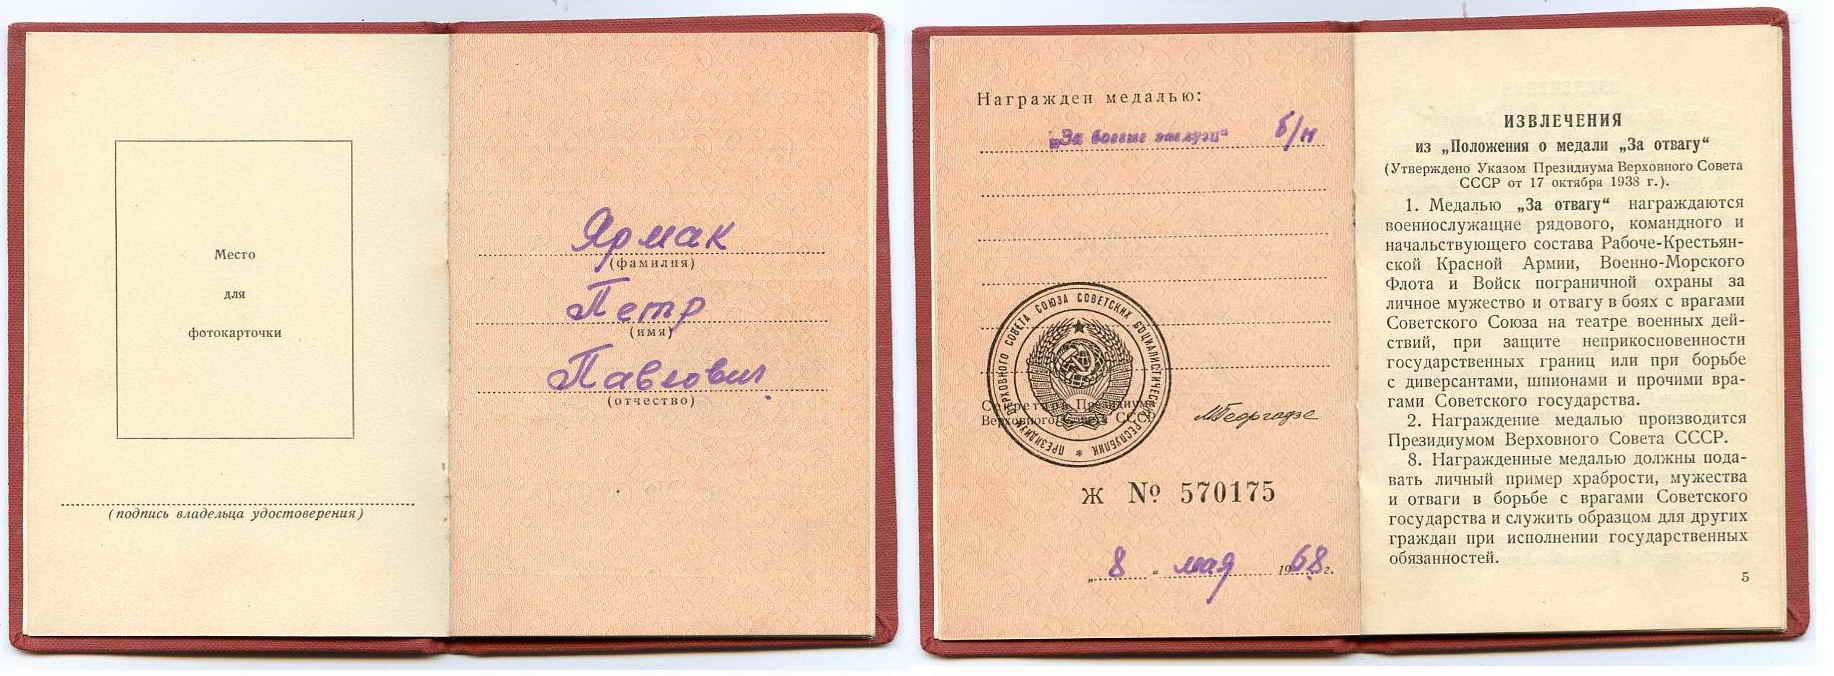 Место
для
фотокарточки
(подпись владельца удостоверения)
Ярмак
(фамилия)
Петр
(имя)
Павлович
(отчество)
Награжден медалью:
„За боевые заслуги“ б/н
ПРЕЗИДИУМ ВЕРХОВНОГО СОВЕТА СОЮЗА СОВЕТСКИХ СОЦИАЛИСТИЧЕСКИХ РЕСПУБЛИК *
Секретарь Президиума
Верховного Совета СССР
МГеоргадзе
Ж № 570175
„ 8 “ мая 1968 г.
ИЗВЛЕЧЕНИЯ
из „Положения о медали „За отвагу“
(Утверждено Указом Президиума Верховного Совета
СССР от 17 октября 1938 г.).
1. Медалью „За отвагу“ награждаются
военнослужащие рядового, командного и
начальствующего состава Рабоче-Крестьян-
ской Красной Армии, Военно-Морского
Флота и Войск пограничной охраны за
личное мужество и отвагу в боях с врагами
Советского Союза на театре военных дей-
ствий, при защите неприкосновенности
государственных границ или при борьбе
с диверсантами, шпионами и прочими вра-
гами Советского государства.
2. Награждение медалью производится
Президиумом Верховного Совета СССР.
8. Награжденные медалью должны пода-
вать личный пример храбрости, мужества
и отваги в борьбе с врагами Советского
государства и служить образцом для других
граждан при исполнении государственных
обязанностей.
5